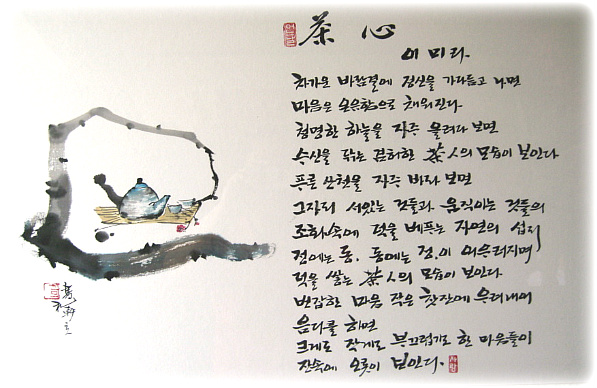 茶心
이미라.
차가운 바람결에 정신을 가다듬고 나면
마음은 은은함으로 채워진다
청명한 하늘을 자주 올려다 보면
수신을 닦는 겸허한 茶人의 모습이 보인다
푸른 산천을 자주 바라 보면
그자리 서있는 것들과 움직이는 것들의
조화속에 덕을 베푸는 자연의 섭리
정에는 동. 동에는 정.이 어우러지며
덕을 쌓는 茶人의 모습이 보인다.
번잡한 마음 작은 찻잔에 우려내어
음다를 하면
크게도 작게도 부끄럽기도 한 마음들이
잔속에 오롯이 보인다.